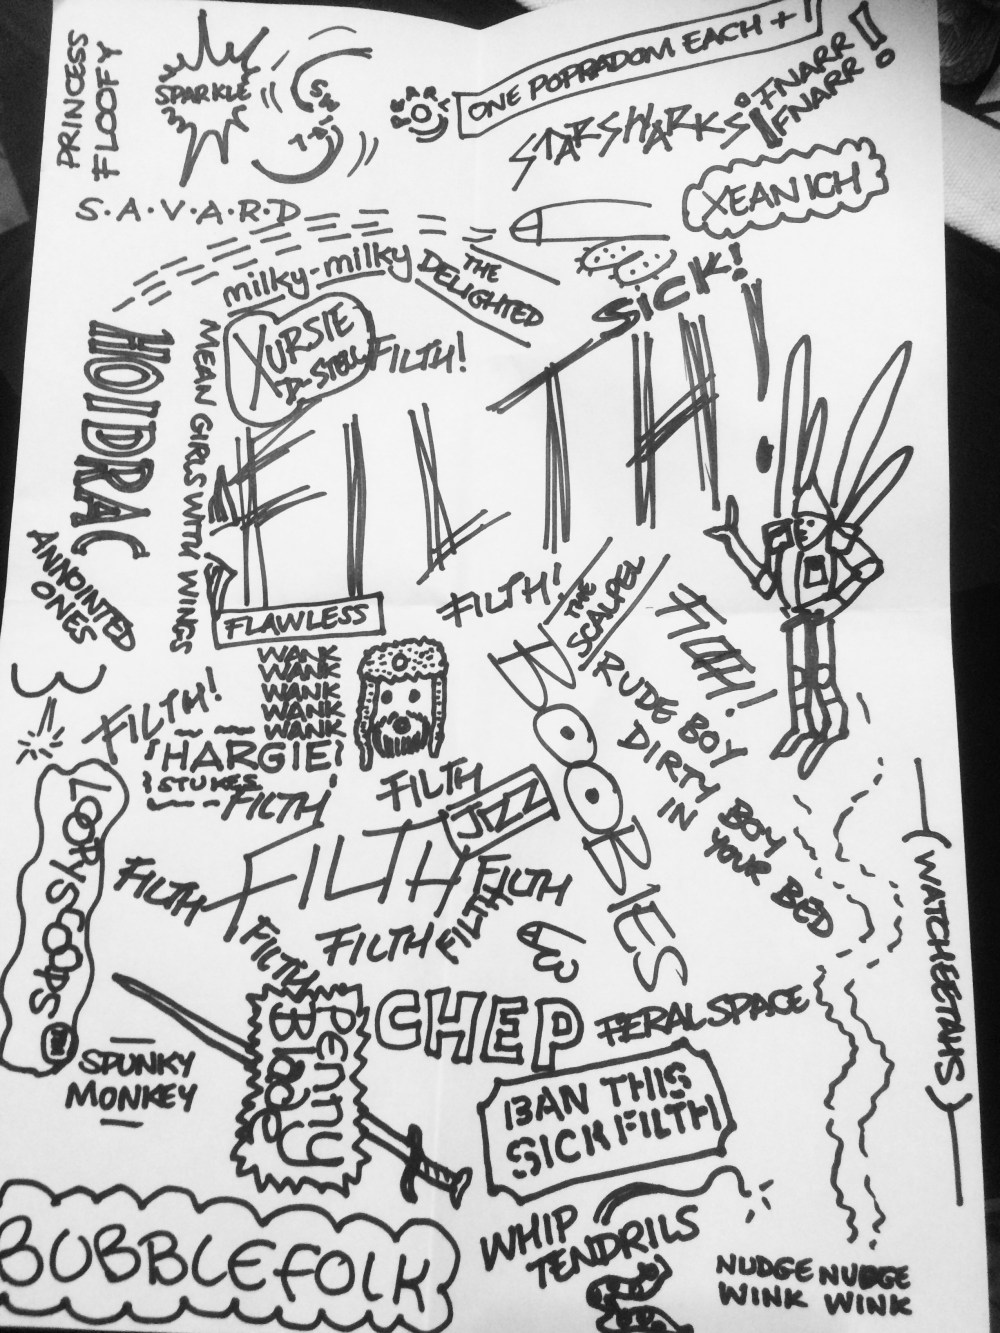 PRINCESS
FLOOFY
SPARKLE
ONE POPPADOM EACH +
STARSHARKS!
FNARR
FNARR!
XEANICH
S.A.V.A.R.D
milky-milky
THE
DELIGHTED
SICK!
HOIDRAC
MEAN GIRLS WITH WINGS
XURSIE
FILTH!
FILTH
ANNOINTED
ONES
FLAWLESS
FILTH!
THE
SCALPEL
FILTH!
WANK
WANK
WANK
WANK
WANK
FILTH!
HARGIE
STUKES
FILTH
FILTH
JIZZ
BOOBIES
RUDE BOY
DIRTY BOY
IN YOUR BED
FILTH
FILTH
FILTH
FILTH
FILTH
FILTH
WATCHEETAHS
SPUNKY
MONKEY
Penny
Blade
CHEP
FERALSPACE
BAN THIS
SICK FILTH
BUBBLEFOLK
WHIP
TENDRILS
NUDGE NUDGE
WINK WINK